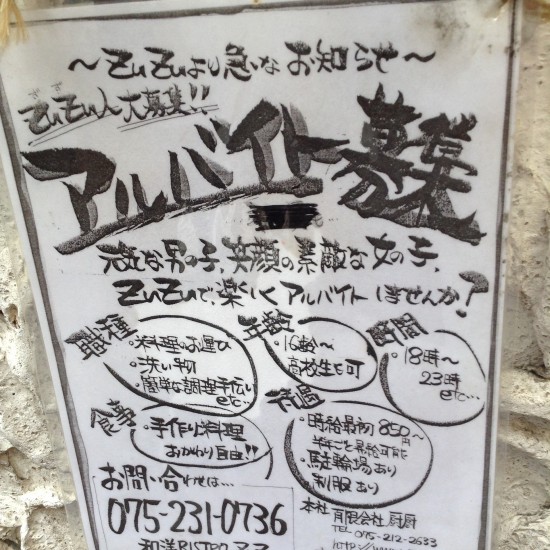 ～ZuZuより急なお知らせ～
ZuZu人大募集!!
アルバイト募集
な男の子、笑顔の素敵な女の子、
ZuZuで、楽しくアルバイトしませんか?
・料理のお運び
・洗い物
・簡単な調理手伝い
etc…
・16齢～
高校生も可
時間
・18時～
23時
etc…
食事
・手作り料理
おかわり自由!!
・時給最初850～
円
半年ごと昇給可能
・駐輪場あり
・制服あり
お問い合わせは…
075-231-0736
和洋BISTRO
本社 有限会社 厨厨
TEL 075-212-2633
http://www